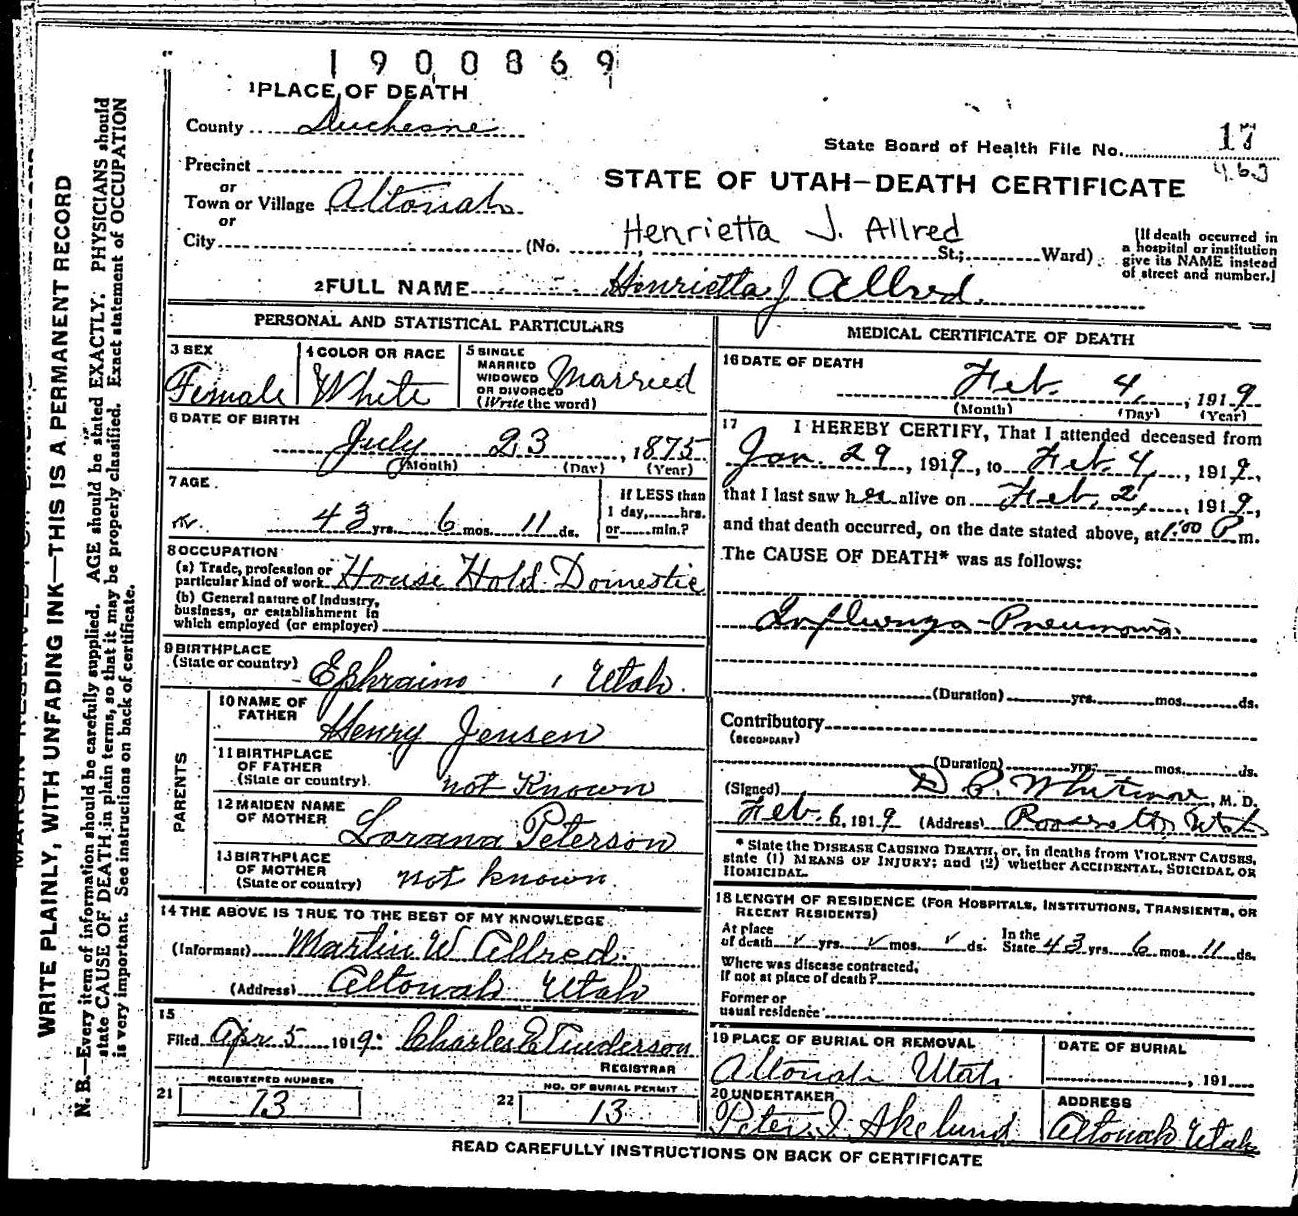 1900869
1 PLACE OF DEATH
County Duchesne
State Board of Health File No. 17
463
Precinct
or
Town or Village Altonah
or
City (No. St.; Ward)
STATE OF UTAH—DEATH CERTIFICATE
Henrietta J. Allred
[If death occurred in
a hospital or institution
give its NAME instead
of street and number.]
2 FULL NAME Henrietta J Allred.
PERSONAL AND STATISTICAL PARTICULARS
3 SEX
Female
4 COLOR OR RACE
White
5 SINGLE
MARRIED
WIDOWED
OR DIVORCED
(Write the word)
Married
6 DATE OF BIRTH
July 23, 1875
(Month) (Day) (Year)
7 AGE
43 yrs. 6 mos. 11 ds.
If LESS than
1 day, hrs.
or min.?
8 OCCUPATION
(a) Trade, profession or
particular kind of work House Hold Domestic
(b) General nature of Industry,
business, or establishment in
which employed (or employer)
9 BIRTHPLACE
(State or country) Ephraim, Utah.
PARENTS
10 NAME OF
FATHER
Henry Jensen
11 BIRTHPLACE
OF FATHER
(State or country) not Known
12 MAIDEN NAME
OF MOTHER
Lorana Peterson
13 BIRTHPLACE
OF MOTHER
(State or country) not known.
14 THE ABOVE IS TRUE TO THE BEST OF MY KNOWLEDGE
(Informant) Martin W Allred.
(Address) Altonah Utah
15
Filed Apr 5 1919:
REGISTRAR
REGISTERED NUMBER
21 13
NO. OF BURIAL PERMIT
22 13
MEDICAL CERTIFICATE OF DEATH
16 DATE OF DEATH
Feb. 4, 1919
(Month) (Day) (Year)
17 I HEREBY CERTIFY, That I attended deceased from
Jan. 29, 1919, to Feb. 4, 1919,
that I last saw her alive on Feb. 2, 1919,
and that death occurred, on the date stated above, at 1:00 P m.
The CAUSE OF DEATH* was as follows:
Influenza-Pneumonia
(Duration) yrs. mos. ds.
Contributory
(SECONDARY)
(Duration) yrs. mos. ds.
(Signed) , M. D.
Feb. 6, 1919 (Address) Utah
* State the DISEASE CAUSING DEATH, or, in deaths from VIOLENT CAUSES,
state (1) MEANS OF INJURY; and (2) whether ACCIDENTAL, SUICIDAL OR
HOMICIDAL.
18 LENGTH OF RESIDENCE (FOR HOSPITALS, INSTITUTIONS, TRANSIENTS, OR
RECENT RESIDENTS)
At place
of death ✓ yrs. ✓ mos. ✓ ds.
In the
State 43 yrs. 6 mos. 11 ds.
Where was disease contracted,
If not at place of death?
Former or
usual residence
19 PLACE OF BURIAL OR REMOVAL
Altonah Utah.
DATE OF BURIAL
, 191
20 UNDERTAKER
Peter
ADDRESS
Altonah Utah
READ CAREFULLY INSTRUCTIONS ON BACK OF CERTIFICATE
WRITE PLAINLY, WITH UNFADING INK—THIS IS A PERMANENT RECORD
N. B.—Every item of information should be carefully supplied. AGE should be stated EXACTLY. PHYSICIANS should
state CAUSE OF DEATH in plain terms, so that it may be properly classified. Exact statement of OCCUPATION
is very important. See instructions on back of certificate.